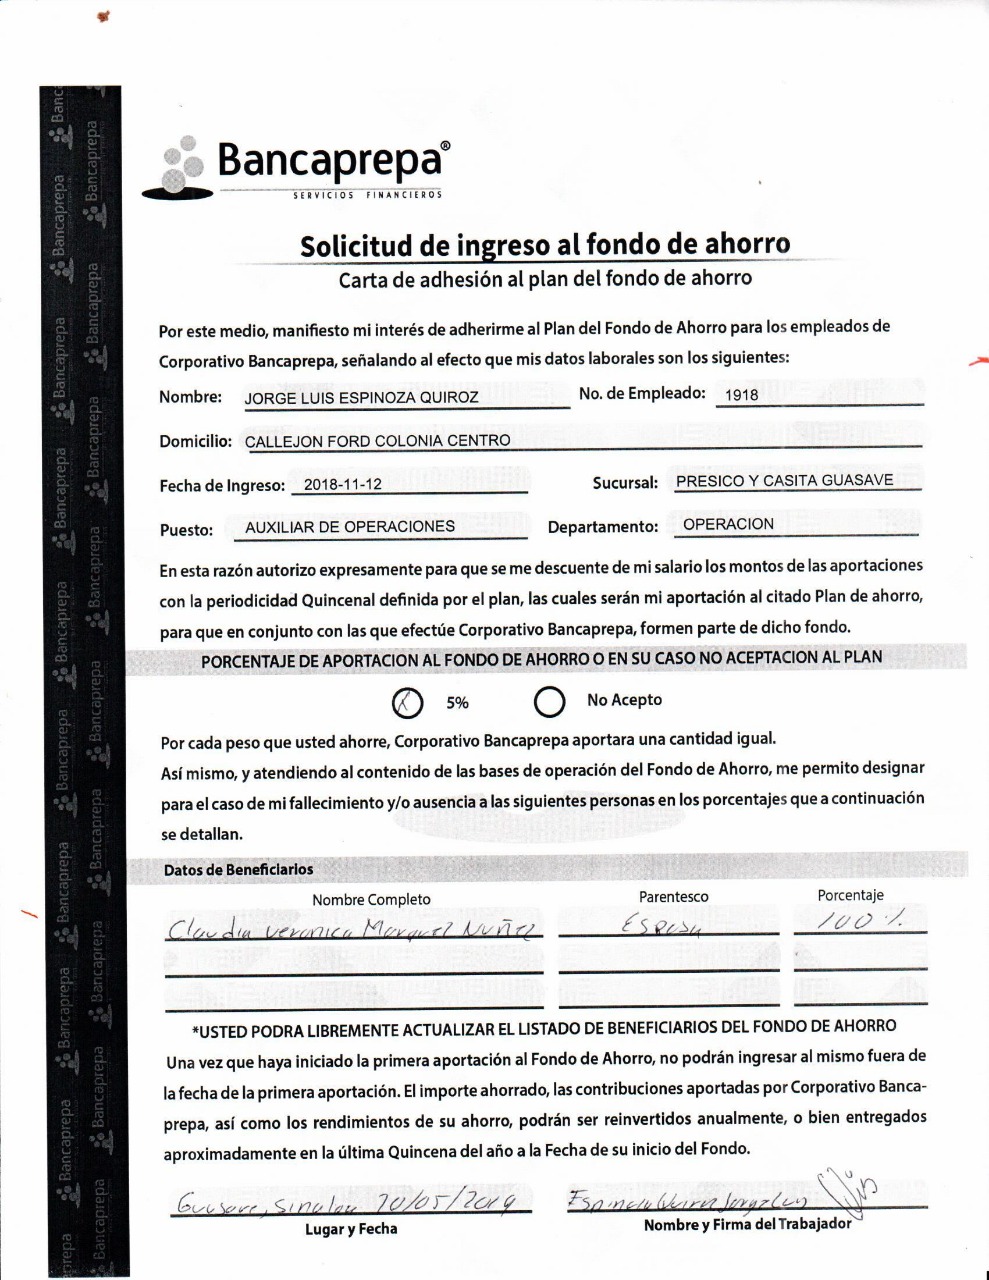 Bancaprepa®
SERVICIOS FINANCIEROS
Solicitud de ingreso al fondo de ahorro
Carta de adhesión al plan del fondo de ahorro
Por este medio, manifiesto mi interés de adherirme al Plan del Fondo de Ahorro para los empleados de
Corporativo Bancaprepa, señalando al efecto que mis datos laborales son los siguientes:
Nombre: JORGE LUIS ESPINOZA QUIROZ No. de Empleado: 1918
Domicilio: CALLEJON FORD COLONIA CENTRO
Fecha de Ingreso: 2018-11-12 Sucursal: PRESICO Y CASITA GUASAVE
Puesto: AUXILIAR DE OPERACIONES Departamento: OPERACION
En esta razón autorizo expresamente para que se me descuente de mi salario los montos de las aportaciones
con la periodicidad Quincenal definida por el plan, las cuales serán mi aportación al citado Plan de ahorro,
para que en conjunto con las que efectúe Corporativo Bancaprepa, formen parte de dicho fondo.
PORCENTAJE DE APORTACION AL FONDO DE AHORRO O EN SU CASO NO ACEPTACION AL PLAN
X 5% No Acepto
Por cada peso que usted ahorre, Corporativo Bancaprepa aportara una cantidad igual.
Así mismo, y atendiendo al contenido de las bases de operación del Fondo de Ahorro, me permito designar
para el caso de mi fallecimiento y/o ausencia a las siguientes personas en los porcentajes que a continuación
se detallan.
Datos de Beneficiarios
Nombre Completo Parentesco Porcentaje
Claudia Veronica Marquez Nuñez Esposa 100 %
*USTED PODRA LIBREMENTE ACTUALIZAR EL LISTADO DE BENEFICIARIOS DEL FONDO DE AHORRO
Una vez que haya iniciado la primera aportación al Fondo de Ahorro, no podrán ingresar al mismo fuera de
la fecha de la primera aportación. El importe ahorrado, las contribuciones aportadas por Corporativo Banca-
prepa, así como los rendimientos de su ahorro, podrán ser reinvertidos anualmente, o bien entregados
aproximadamente en la última Quincena del año a la Fecha de su inicio del Fondo.
Guasave, Sinaloa 20/05/2019 Espinoza Quiroz Jorge Luis
Lugar y Fecha Nombre y Firma del Trabajador